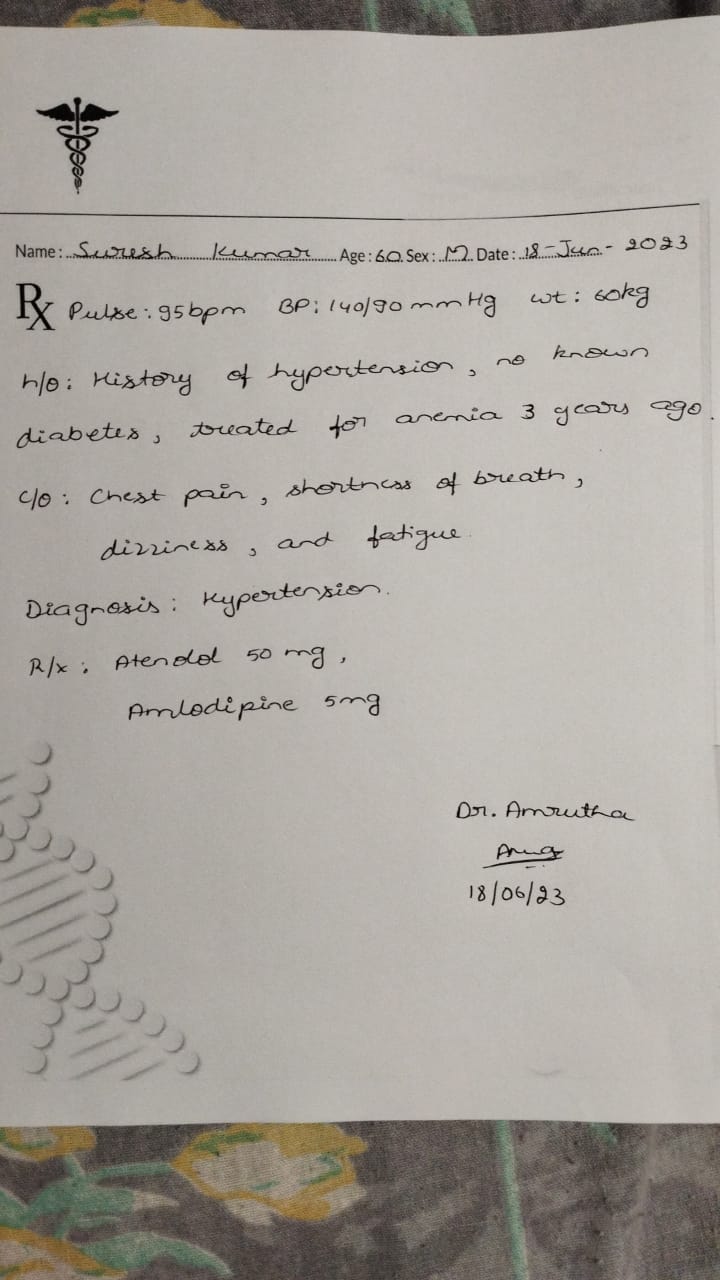 Name: Suresh Kumar Age: 60 Sex: M Date: 18-Jun-2023
Rx Pulse: 95bpm BP: 140/90 mmHg wt: 60kg
h/o: History of hypertension, no known
diabetes, treated for anemia 3 years ago.
c/o: Chest pain, shortness of breath,
dizziness, and fatigue.
Diagnosis: Hypertension.
R/x: Atenolol 50 mg,
Amlodipine 5mg
Dr. Amrutha
18/06/23